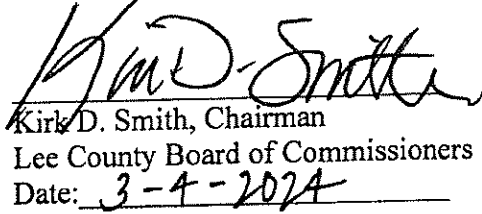 Kirk D. Smith
Kirk D. Smith, Chairman
Lee County Board of Commissioners
Date: 3-4-2024